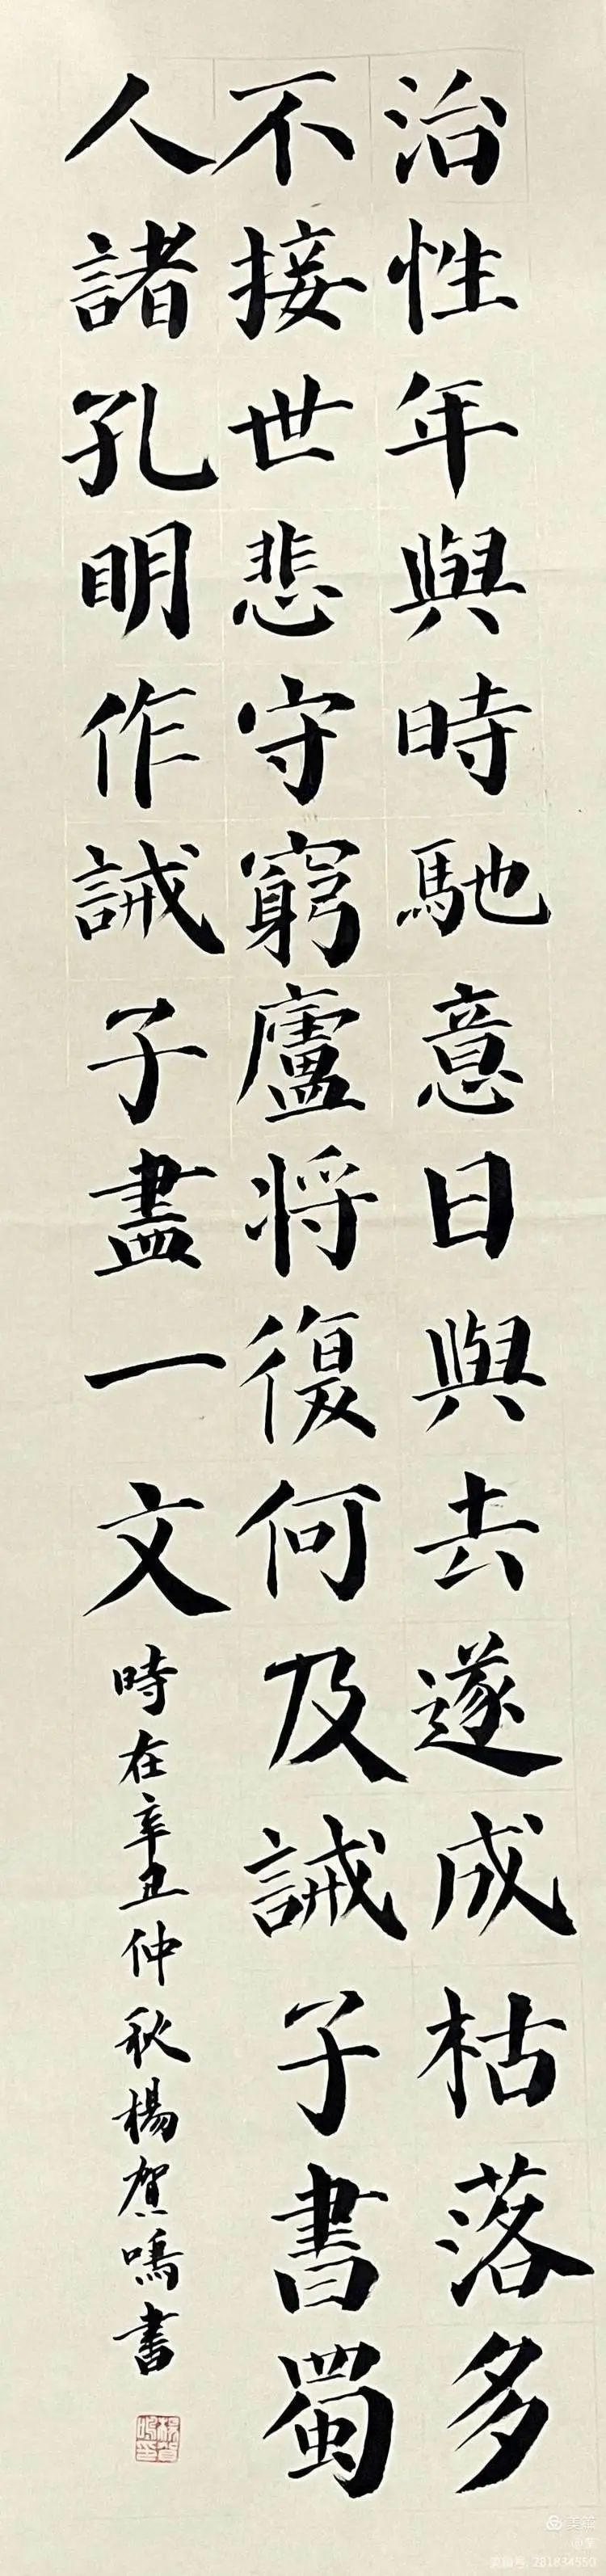 治性年與時馳意日與去遂成枯落多
不接世悲守窮廬將復何及誡子書蜀
人諸孔明作誡子盡一文
時在辛丑仲秋楊賀鳴書
美篇
美篇号: 281834550